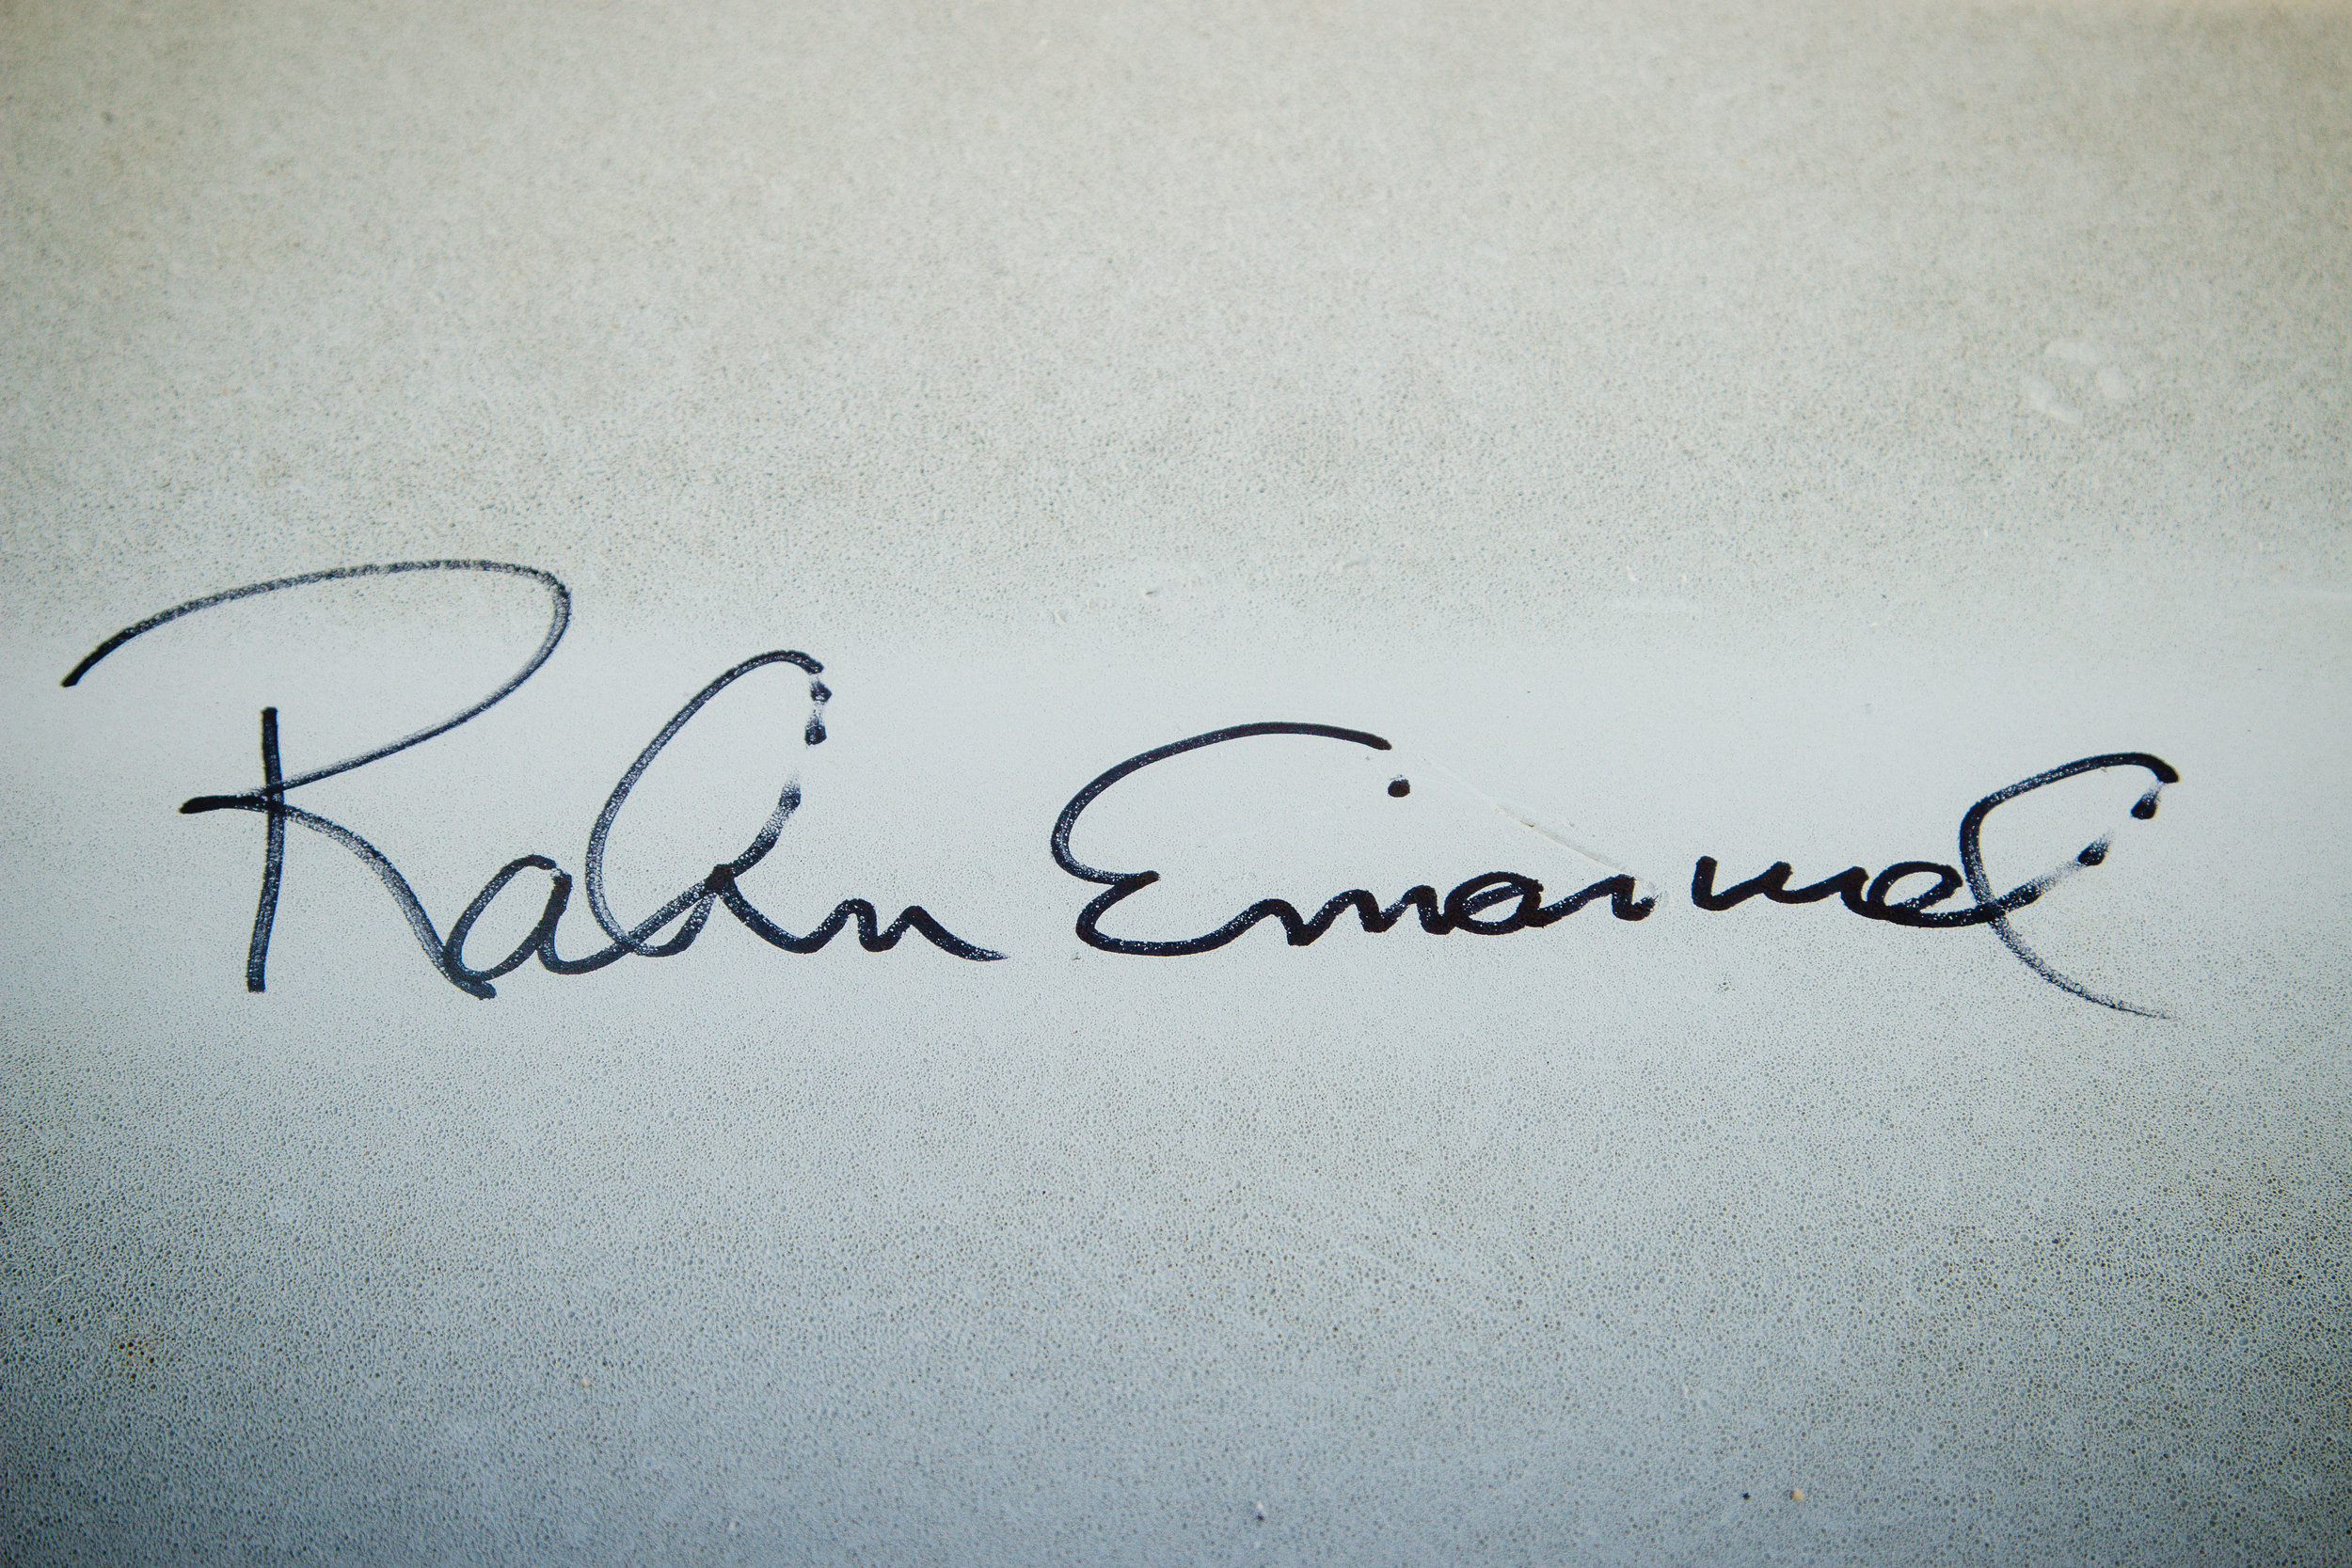 Rahm Emanuel